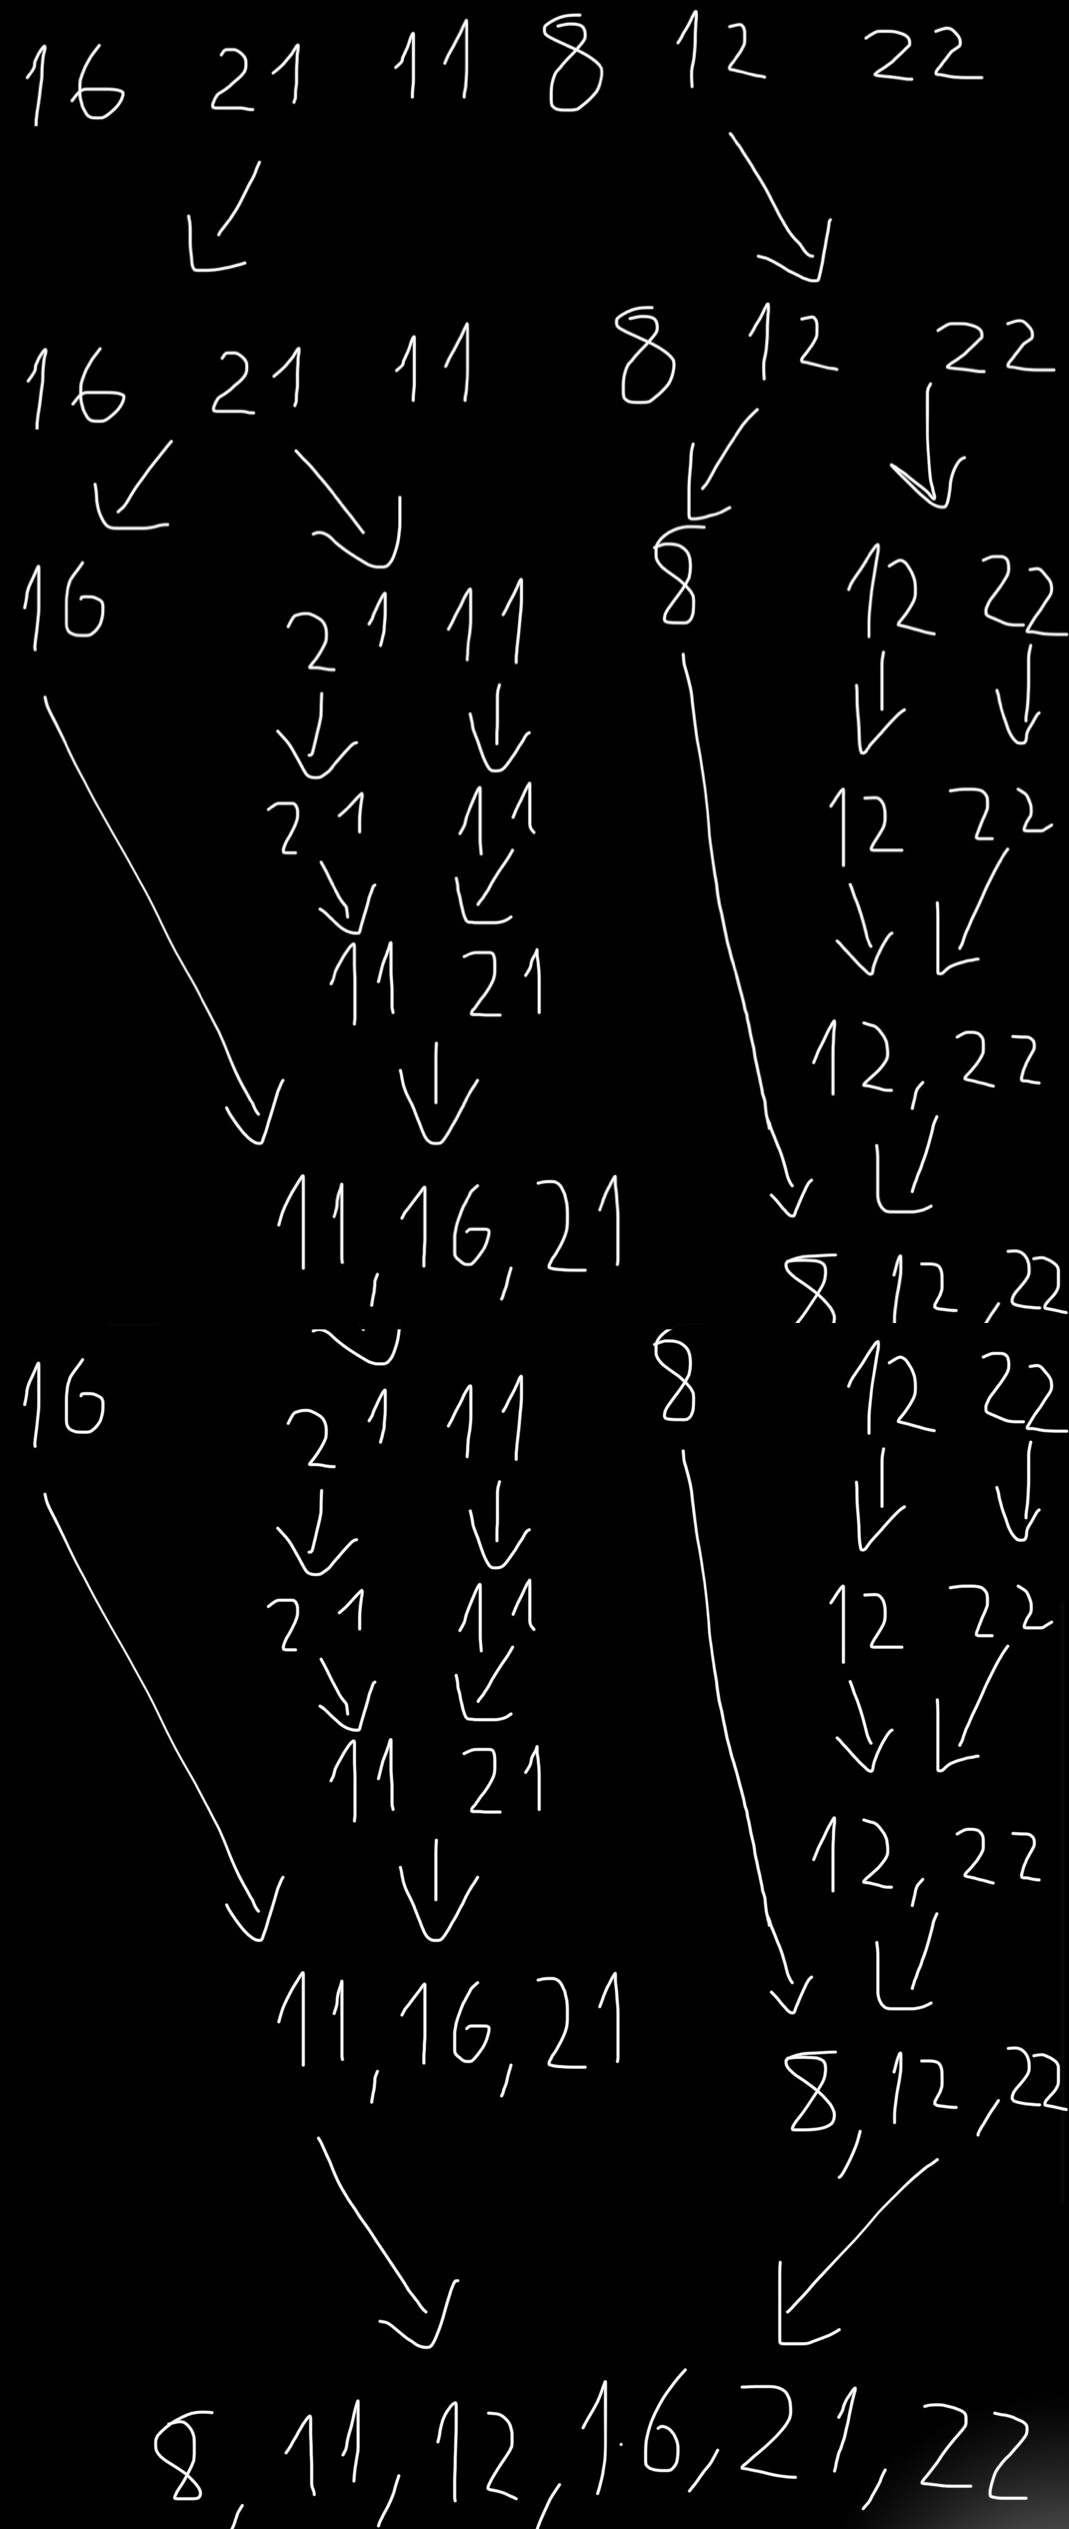 16 21 11 8 12 22
16 21 11 8 12 22
16 21 11 8 12 22
21 11 12 22
11 21 12, 22
11, 16, 21 8 12, 22
16 21 11 8 12 22
21 11 12 22
11 21 12, 22
11, 16, 21 8, 12, 22
8, 11, 12, 16, 21, 22